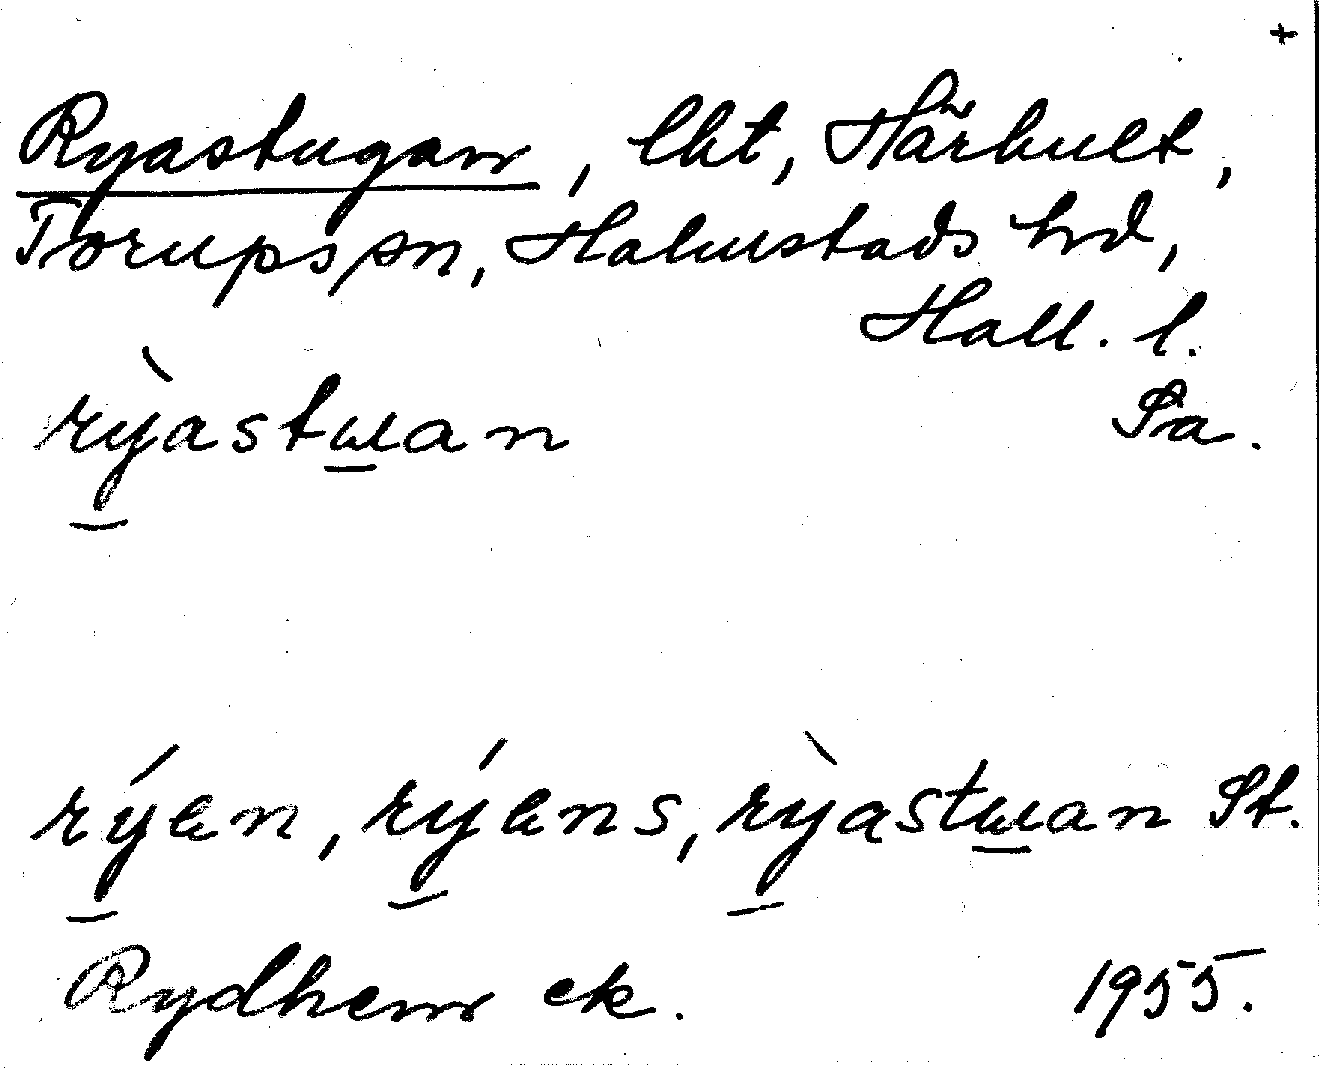 +
Ryastugan, lht, Härhult,
Torups sn, Halmstads hrd,
Hall. l.
rỳastɯan Sa.
rýen, rýens, rỳastɯan St.
Rydhem ek. 1955.